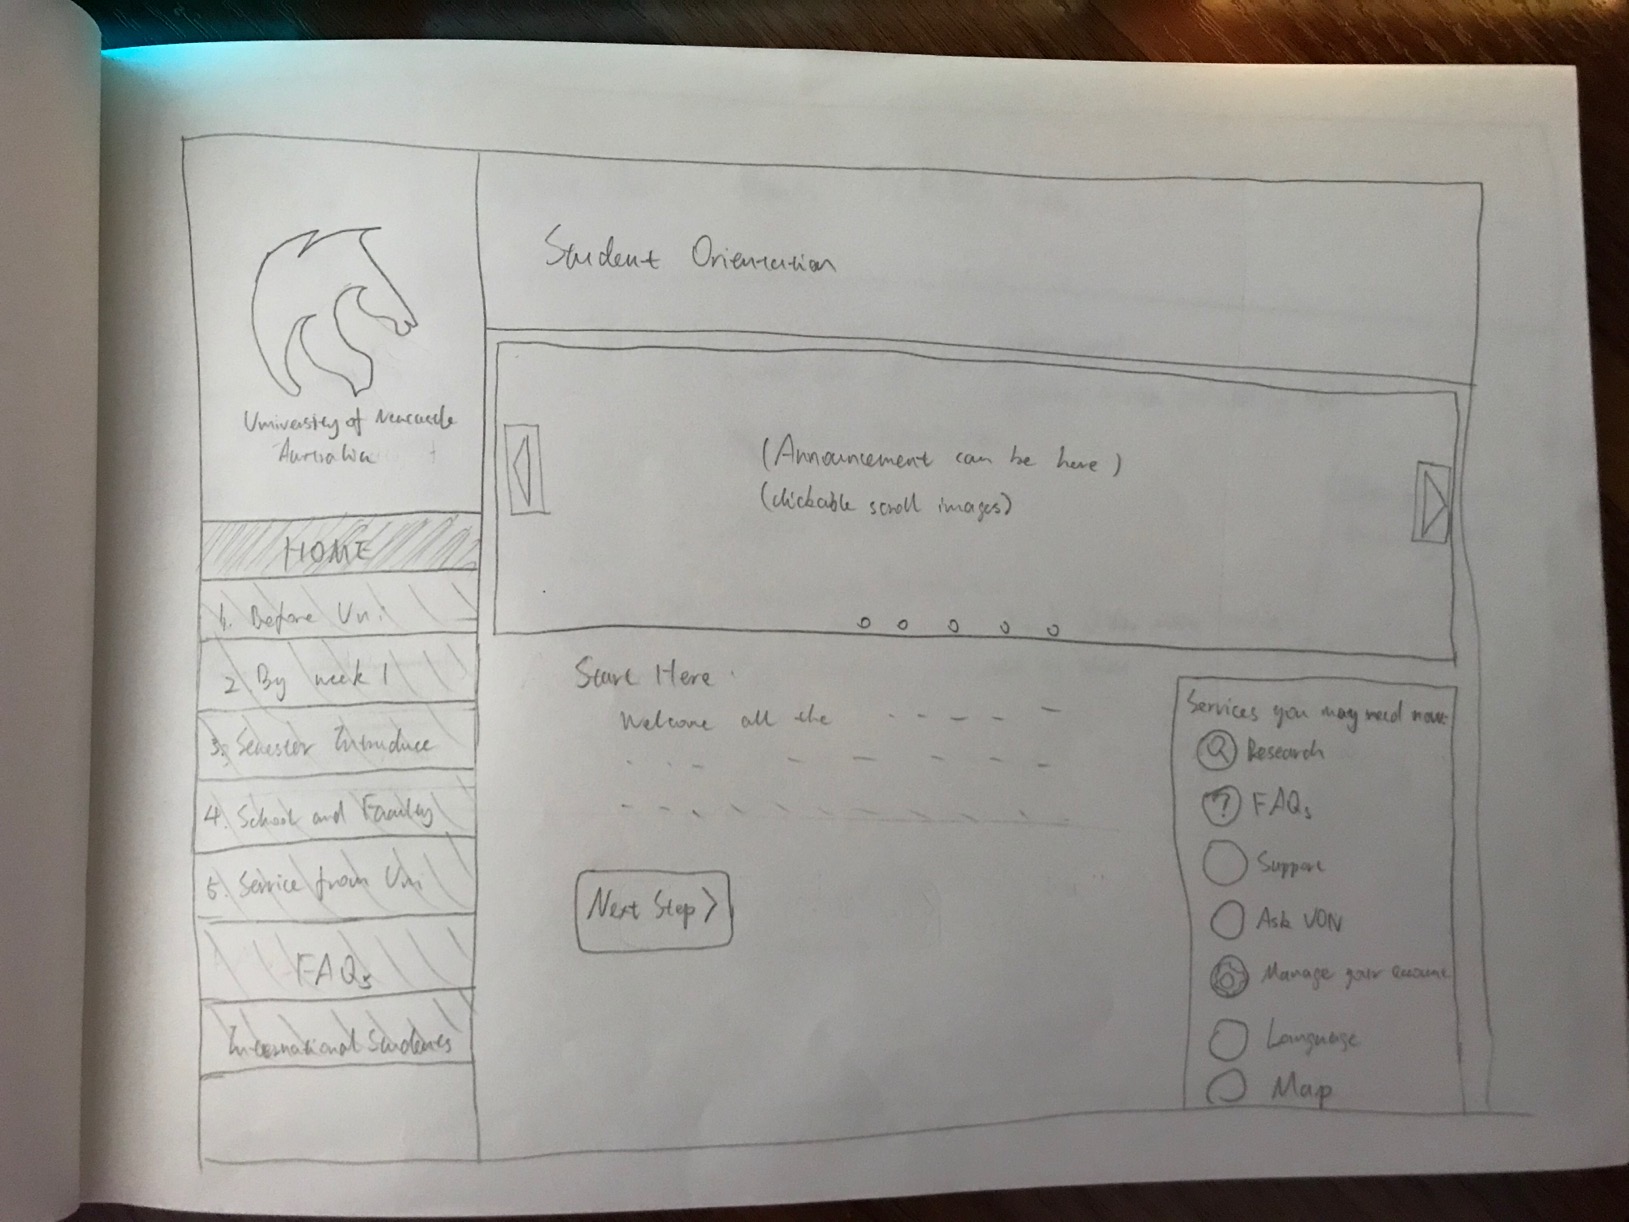 University of Newcastle
Australia
HOME
1. Before Uni
2 By week 1
3. Semester Introduce
4. School and Faculty
5. Service from Uni
FAQs
International Students
Student Orientation
(Announcement can be here)
(clickable scroll images)
Start Here
Welcome all the
Next Step >
Services you may need now
Research
? FAQs
Support
Ask UON
Manage your account
Language
Map